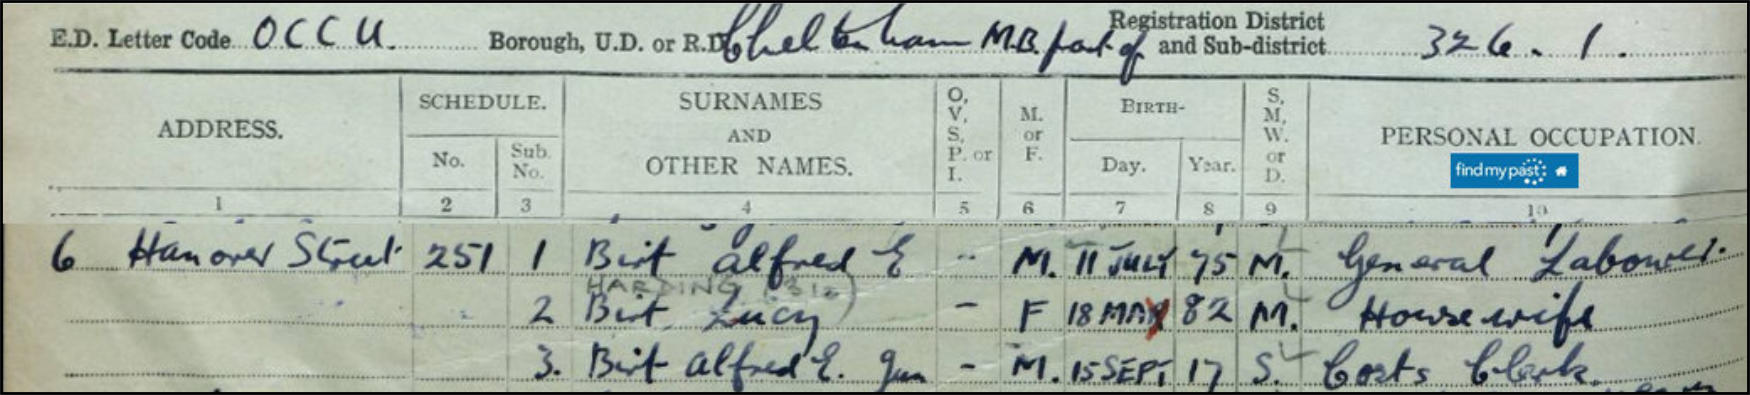 E.D. Letter Code OCCU. Borough, U.D. or R.D. Cheltenham M.B. part of Registration District and Sub-district 326. 1.
ADDRESS. SCHEDULE. No. Sub. No. SURNAMES AND OTHER NAMES. O, V, S, P. or I. M. or F. BIRTH- Day. Year. S, M, W. or D. PERSONAL OCCUPATION.
findmypast
1 2 3 4 5 6 7 8 9 10
6 Hanover Street 251 1 Birt Alfred E - M. 11 JULY 75 M. General Labourer.
HARDING
2 Birt, Lucy - F 18 MAY 82 M. Housewife
3. Birt Alfred E. Jun - M. 15 SEPT 17 S. Costs Clerk